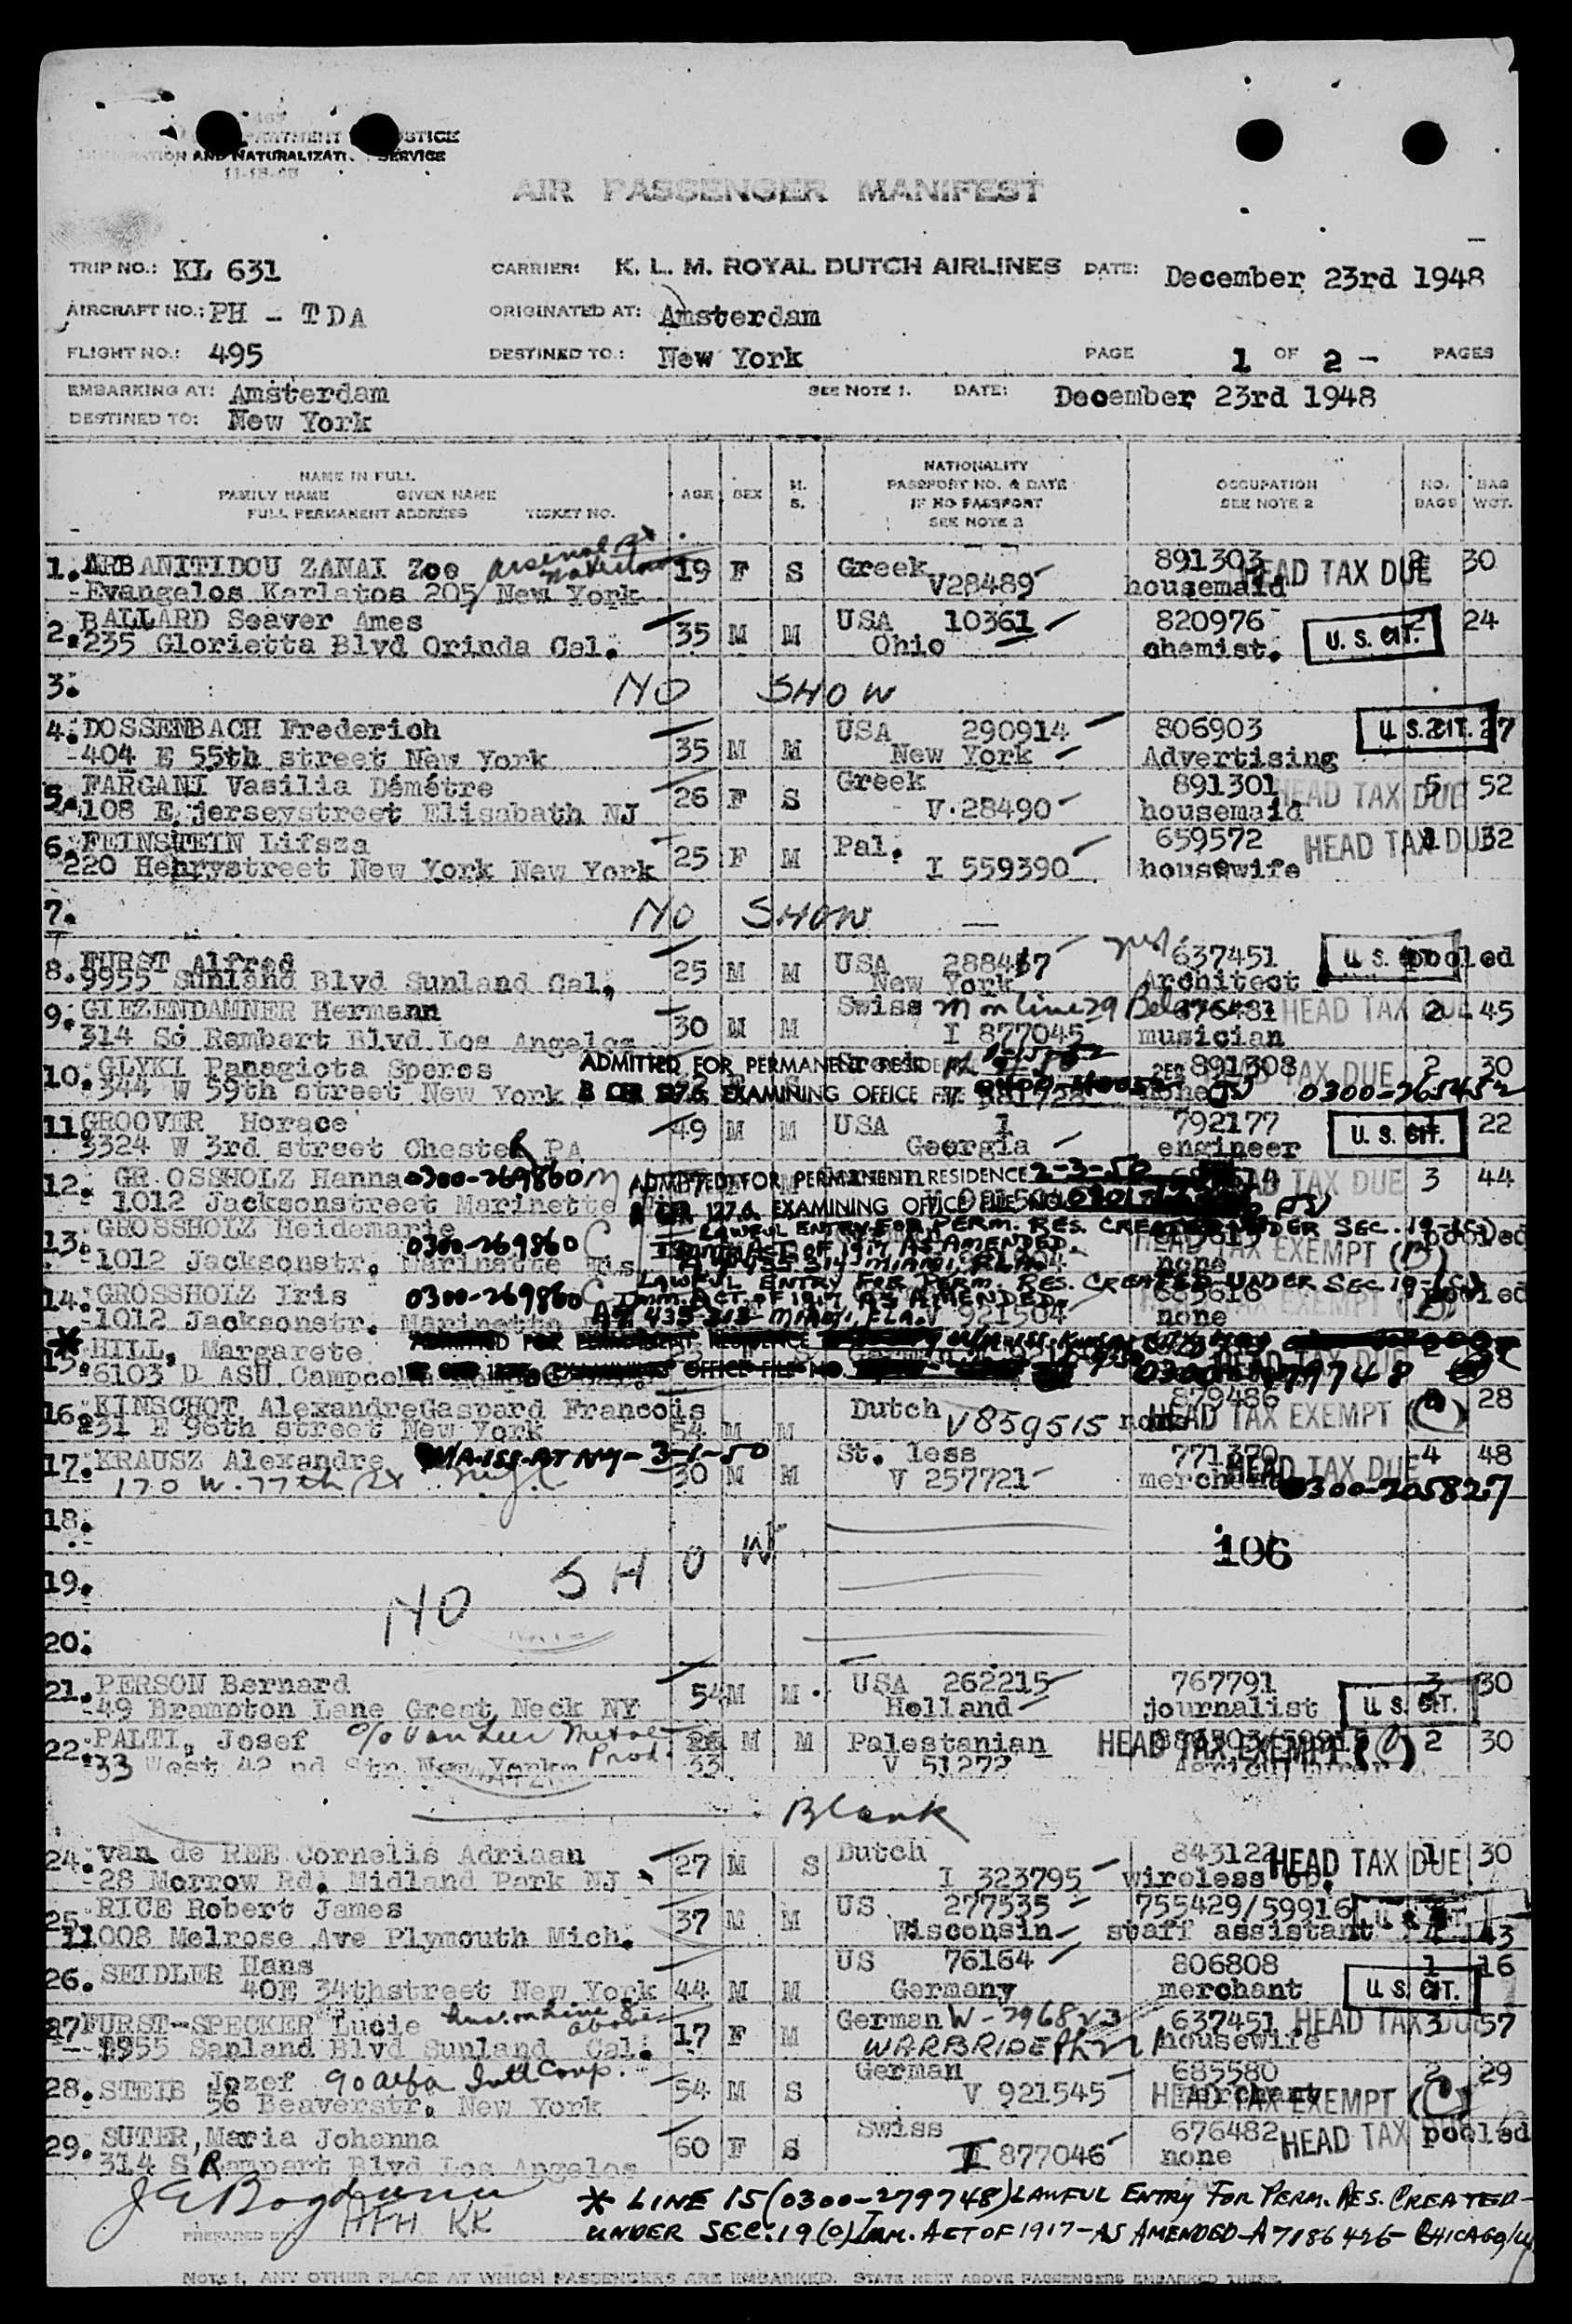 DEPARTMENT OF JUSTICE
IMMIGRATION AND NATURALIZATION SERVICE
AIR PASSENGER MANIFEST
TRIP NO.: KL 631 CARRIER: K. L. M. ROYAL DUTCH AIRLINES DATE: December 23rd 1948
AIRCRAFT NO.: PH - TDA ORIGINATED AT: Amsterdam
FLIGHT NO.: 495 DESTINED TO.: New York PAGE 1 OF 2 - PAGES
EMBARKING AT: Amsterdam SEE NOTE 1. DATE: December 23rd 1948
DESTINED TO: New York
NAME IN FULL
FAMILY NAME GIVEN NAME
FULL PERMANENT ADDRESS TICKET NO.
AGE SEX M. S.
NATIONALITY
PASSPORT NO. & DATE
IF NO PASSPORT
SEE NOTE 2
OCCUPATION
SEE NOTE 2
NO. BAGS
BAG WGT.
1. ARBANITIDOU ZANAI Zoe Arsenal St 19 F S Greek 891303 HEAD TAX DUE 2 30
Evangelos Karlatos 205 New York V28489 housemaid
2. BALLARD Seaver Ames 35 M M USA 10361 820976 2 24
235 Glorietta Blvd Orinda Cal. Ohio chemist. U. S. CIT.
3. NO SHOW
4. DOSSENBACH Frederich 35 M M USA 290914 806903 U. S. CIT. 2 27
404 E 55th street New York New York Advertising
5. FARGANI Vasilia Démétre 26 F S Greek 891301 HEAD TAX DUE 5 52
108 E. jerseystreet Elisabath NJ V.28490 housemaid
6. FEINSTEIN Lifsza 25 F M Pal. 659572 HEAD TAX DUE 1 32
220 Henrystreet New York New York I 559390 housewife
7. NO SHOW
8. FURST Alfred 25 M M USA 288417 637451 U. S. CIT. pooled
9955 Sunland Blvd Sunland Cal. New York Architect
9. GIEZENDAMNER Hermann 30 M M Swiss M on line 29 Below 676481 HEAD TAX DUE 2 45
314 So Rambart Blvd Los Angelos I 877045 musician
10. GLYKI Panagiota Speros ADMITTED FOR PERMANENT RESIDENCE Greek 891308 HEAD TAX DUE 2 30
344 W 59th street New York 8 CFR 127.6. EXAMINING OFFICE FILE none 0300-265452
11. GROOVER Horace 49 M M USA 1 792177 1 22
3324 W 3rd street Chester PA Georgia engineer U. S. CIT.
12. GROSSHOLZ Hanna 0300-269860 M ADMITTED FOR PERMANENT RESIDENCE 2-3-50 HEAD TAX DUE 3 44
1012 Jacksonstreet Marinette 8 CFR 127.6. EXAMINING OFFICE FILE NO.
13. GROSSHOLZ Heidemarie 0300-269860 C LAWFUL ENTRY FOR PERM. RES. CREATED UNDER SEC. 19-(C) pooled
1012 Jacksonstr. Marinette Wis. IMM. ACT. OF 1917 AS AMENDED. MIAMI, FLA. HEAD TAX EXEMPT (B) none
14. GROSSHOLZ Iris 0300-269860 C LAWFUL ENTRY FOR PERM. RES. CREATED UNDER SEC. 19-(C) 685616 pooled
1012 Jacksonstr. Marinette IMM. ACT. OF 1917 AS AMENDED. MIAMI, FLA. V 921504 none HEAD TAX EXEMPT
* 15. HILL, Margarete ADMITTED FOR PERMANENT RESIDENCE HEAD TAX DUE
6103 D ASU EXAMINING OFFICE FILE NO. 0300-279748
16. KINSCHOT AlexandreGaspard Francois 54 M M Dutch V 859515 879486 HEAD TAX EXEMPT (C) 28
31 E 96th street New York none
17. KRAUSZ Alexandre MA.ISS.AT NY-3-1-50 30 M M St. less 771370 HEAD TAX DUE 4 48
170 W. 77th St N.Y.C V 257721 merchant 0300-205827
18.
106
19. NO SHOW
20.
21. PERSON Bernard 54 M M USA 262215 767791 3 30
49 Brampton Lane Great Neck NY Holland journalist U. S. CIT.
22. PALTI, Josef c/o Van Leer Metal Prod. 33 M M Palestanian HEAD TAX EXEMPT (C) 2 30
33 West 42 nd Str New York V 51272
Blank
24. van de REE Cornelis Adriaan 27 M S Dutch 843122 HEAD TAX DUE 1 30
28 Morrow Rd. Midland Park NJ I 323795 wireless op.
25. RICE Robert James 37 M M US 277535 755429/59916 U. S. CIT.
11008 Melrose Ave Plymouth Mich. Wisconsin staff assistant 4 43
26. SEIDLER Hans 44 M M US 76164 806808 1 16
40E 34thstreet New York Germany merchant U. S. CIT.
27 FURST-SPECKER Lucie Hus. on line 8 above 17 F M German W-296823 637451 HEAD TAX DUE 3 57
9955 Sanland Blvd Sunland Cal. WARBRIDE housewife
28. STEIB Jozef 90 Alfa Intl Corp. 54 M S German 685580 2 29
56 Beaverstr. New York V 921545 merchant HEAD TAX EXEMPT (C)
29. SUTER, Maria Johanna 60 F S Swiss 676482 HEAD TAX pooled
314 S Rampart Blvd Los Angelos I 877046 none
* LINE 15 (0300-279748) LAWFUL ENTRY FOR PERM. RES. CREATED-
PREPARED BY HFH KK UNDER SEC. 19(c) IMM. ACT OF 1917-AS AMENDED-A7186426-CHICAGO, Ill
NOTE 1, ANY OTHER PLACE AT WHICH PASSENGERS ARE EMBARKED. STATE NEXT ABOVE PASSENGERS EMBARKED THERE.